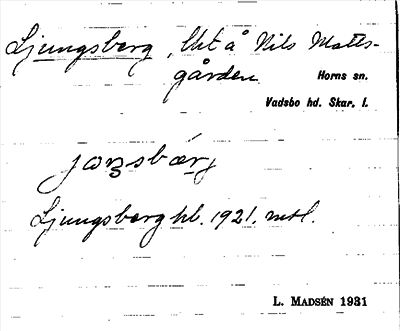 Ljungsberg, lht å Nils Matts-
gården Horns sn.
Vadsbo hd. Skar. l.
Ljungsberg hl. 1921. mtl.
L. MADSÉN 1931